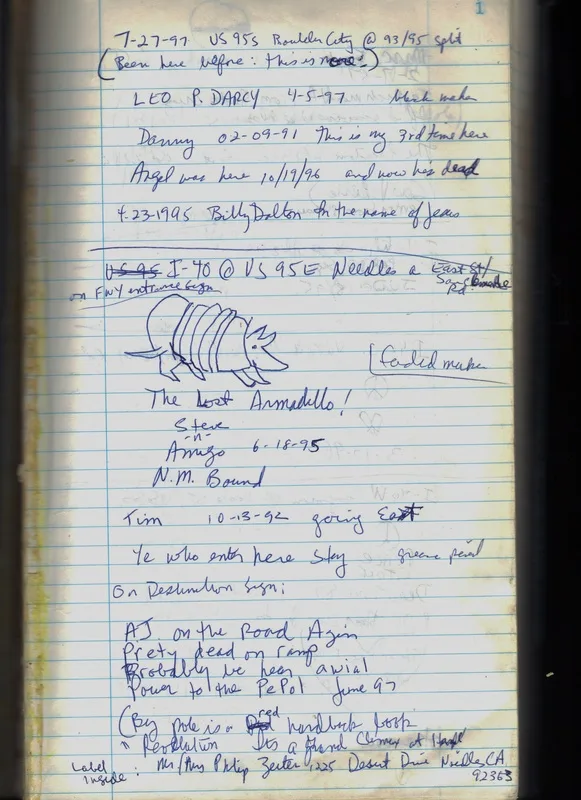 1
7-27-97 US 95S Boulder City @ 93/95 split
(Been here before: this is more:)
LEO P. DARCY 4-5-97 black maker
Danny 02-09-91 This is my 3rd time here
Angel was here 10/19/96 and now his dead
4-23-1995 Billy Dalton In the name of Jesus
US 95 I-40 @ US 95E Needles @ East St/
on FWY entrance sign
faded maker
The Lost Armadillo!
Steve
-n-
Amigo 6-18-95
N.M. Bound
Tim 10-13-92 going East
Ye who enter here stay green pencil
On Destination Sign:
AJ on the Road Agin
Prety dead on ramp
Probably be hear awial
Power to the PePol June 97
(By pole is a red hardback book
Revolution Its a Grand Climax at
Label Inside: Mr/Mrs Philip 1225 Desert Drive Needles CA.
92363